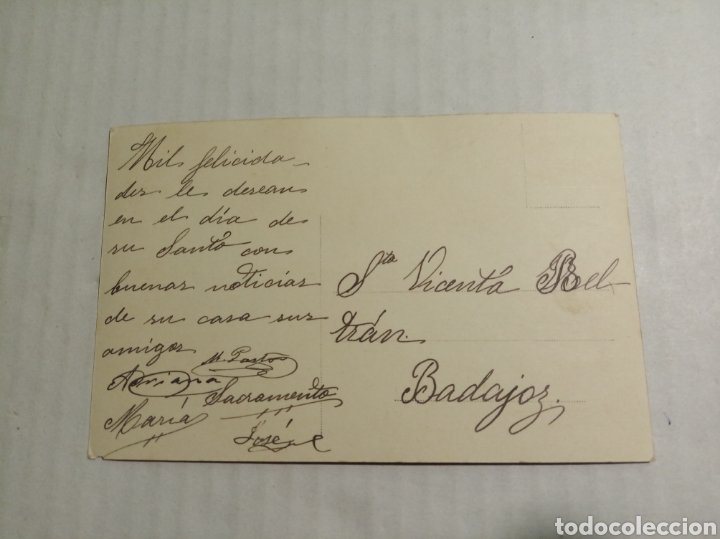 Mil felicida-
des le desean
en el día de
su Santo con
buenas noticias
de su casa sus
amigos
M. Pastor
Adriana
Sacramento
María
José
Sta Vicenta Bel-
trán.
Badajoz.
todocoleccion